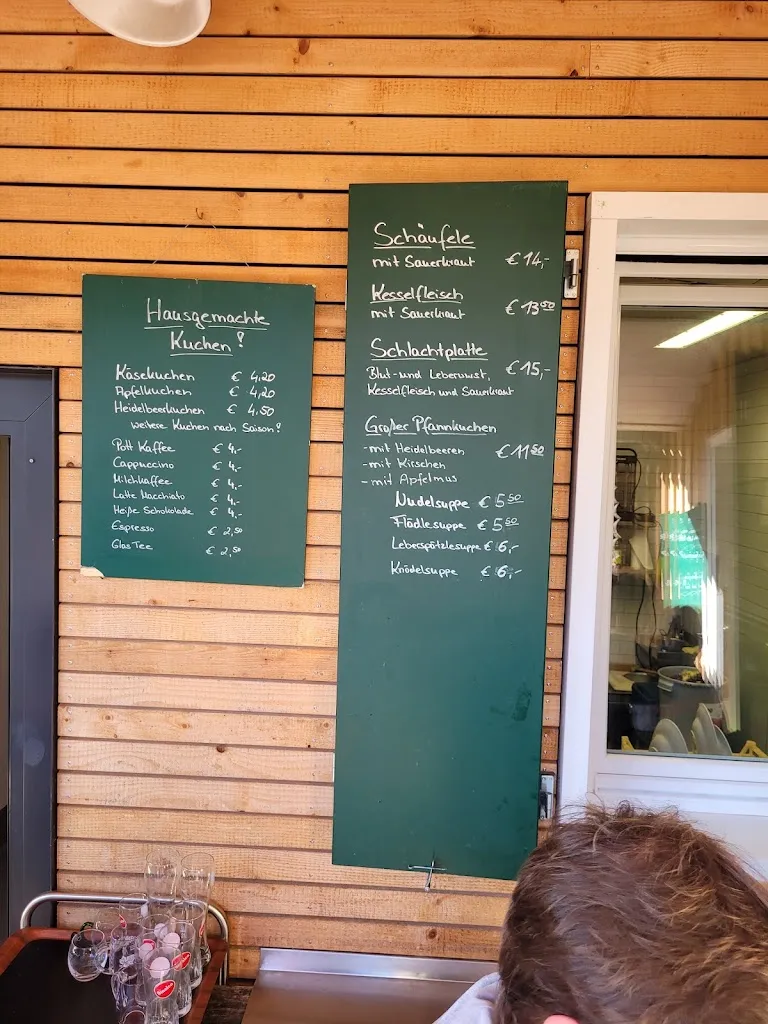 Hausgemachte
Kuchen!
Käsekuchen € 4,20
Apfelkuchen € 4,20
Heidelbeerkuchen € 4,50
weitere Kuchen nach Saison!
Pott Kaffee € 4,-
Cappuccino € 4,-
Milchkaffee € 4,-
Latte Macchiato € 4,-
Heiße Schokolade € 4,-
Espresso € 2,50
Glas Tee € 2,50
Schäufele
mit Sauerkraut € 14,-
Kesselfleisch
mit Sauerkraut € 13 50
Schlachtplatte
Blut- und Leberwurst, € 15,-
Kesselfleisch und Sauerkraut
Großer Pfannkuchen
- mit Heidelbeeren € 11 50
- mit Kirschen
- mit Apfelmus
Nudelsuppe € 5 50
Flädlesuppe € 5 50
Leberspätzlesuppe € 6,-
Knödelsuppe € 6,-